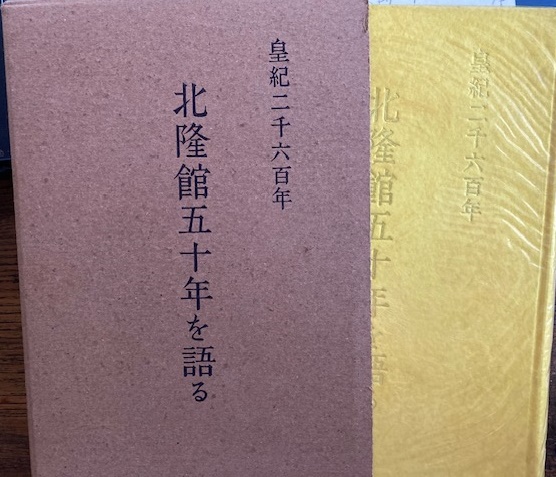 皇紀二千六百年
北隆館五十年を語る
皇紀二千六百年
北隆館五十年を語る